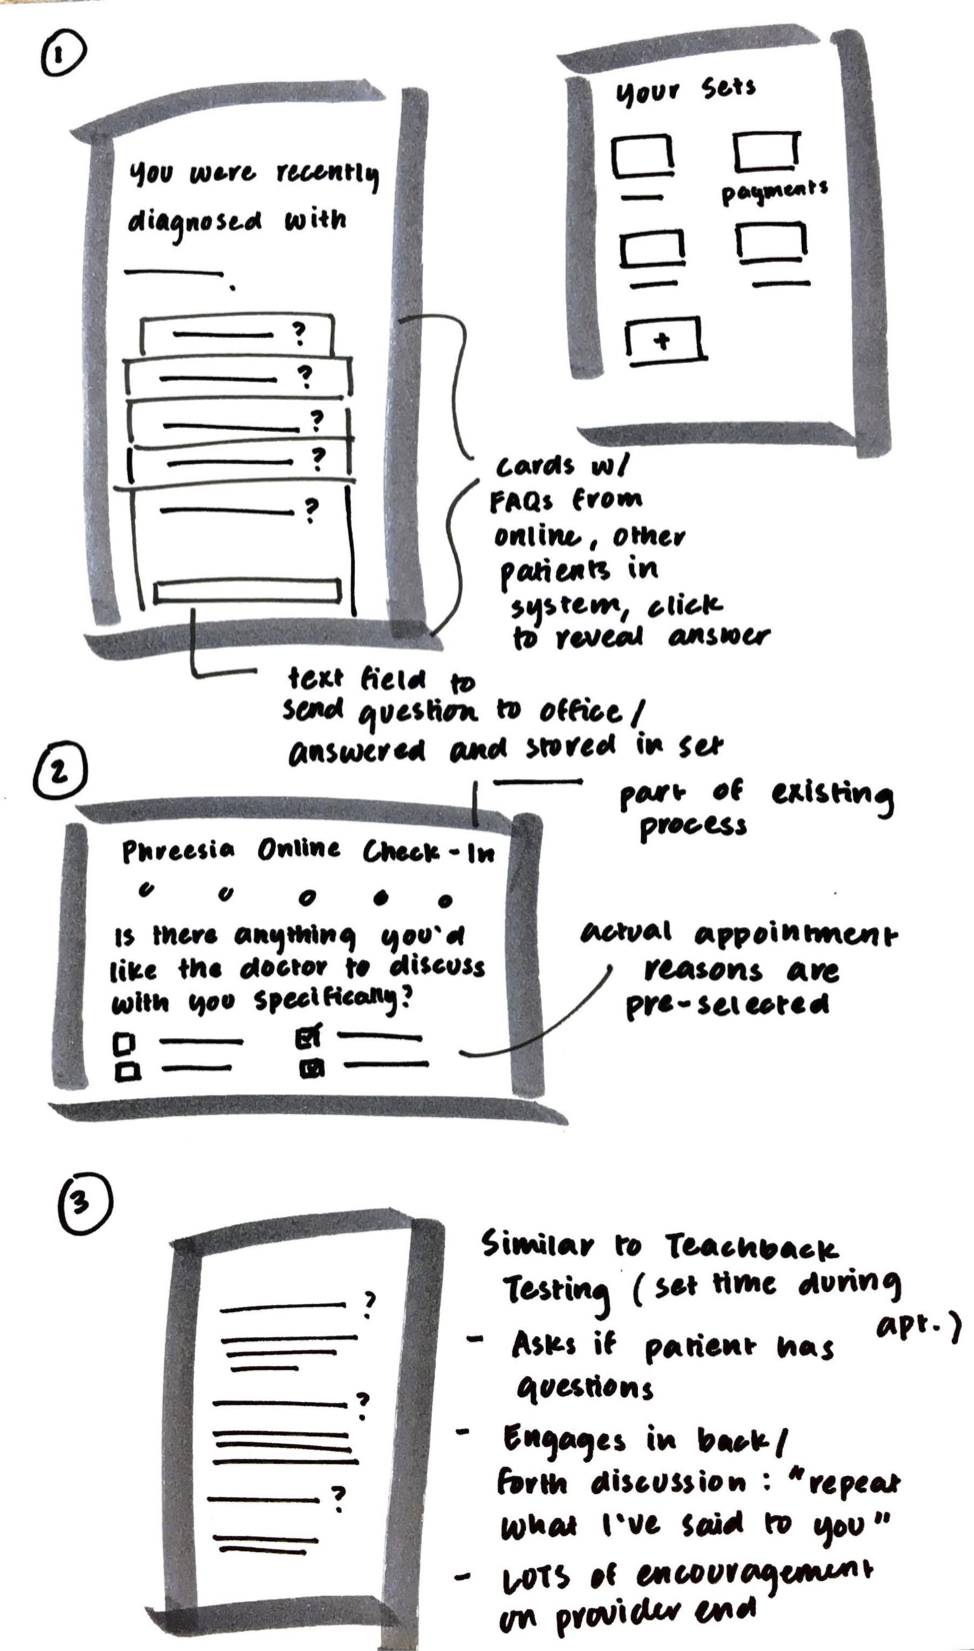 1
You were recently
diagnosed with
?
?
?
?
?
Your Sets
payments
+
cards w/
FAQs from
online, other
patients in
system, click
to reveal answer
text field to
send question to office/
answered and stored in set
2
part of existing
process
Phreesia Online Check-In
Is there anything you'd
like the doctor to discuss
with you specifically?
actual appointment
reasons are
pre-selected
3
?
?
?
Similar to Teachback
Testing (set time during
apt.)
- Asks if patient has
questions
- Engages in back/
forth discussion: "repeat
what I've said to you"
- LOTS of encouragement
on provider end